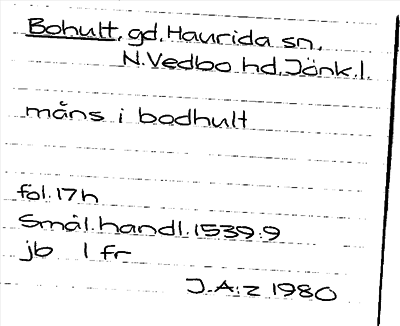 Bohult, gd, Haurida sn,
N.Vedbo hd, Jönk.l.
måns i bodhult
fol. 17h
Smål.handl. 1539:9
jb 1 fr
J.A:z 1980